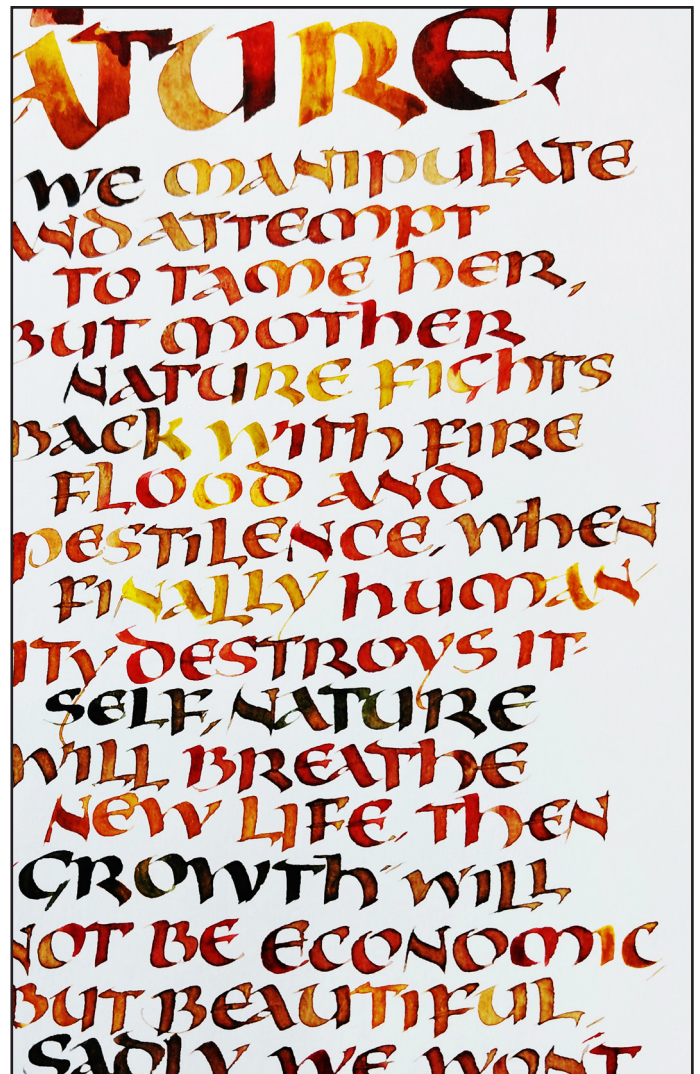 ATURE
WE MANIPULATE
AND ATTEMPT
TO TAME HER,
BUT MOTHER
NATURE FIGHTS
BACK WITH FIRE
FLOOD AND
PESTILENCE, WHEN
FINALLY HUMAN
ITY DESTROYS IT-
SELF, NATURE
WILL BREATHE
NEW LIFE, THEN
GROWTH WILL
NOT BE ECONOMIC
BUT BEAUTIFUL,
SADLY WE WON'T